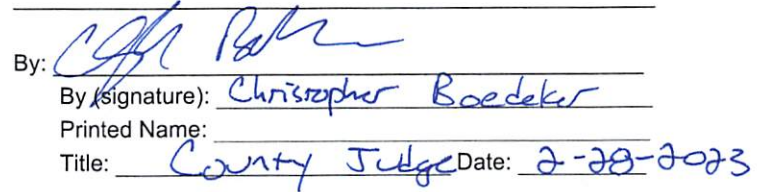 By:
By (signature): Christopher Boedeker
Printed Name:
Title: County Judge Date: 2-28-2023